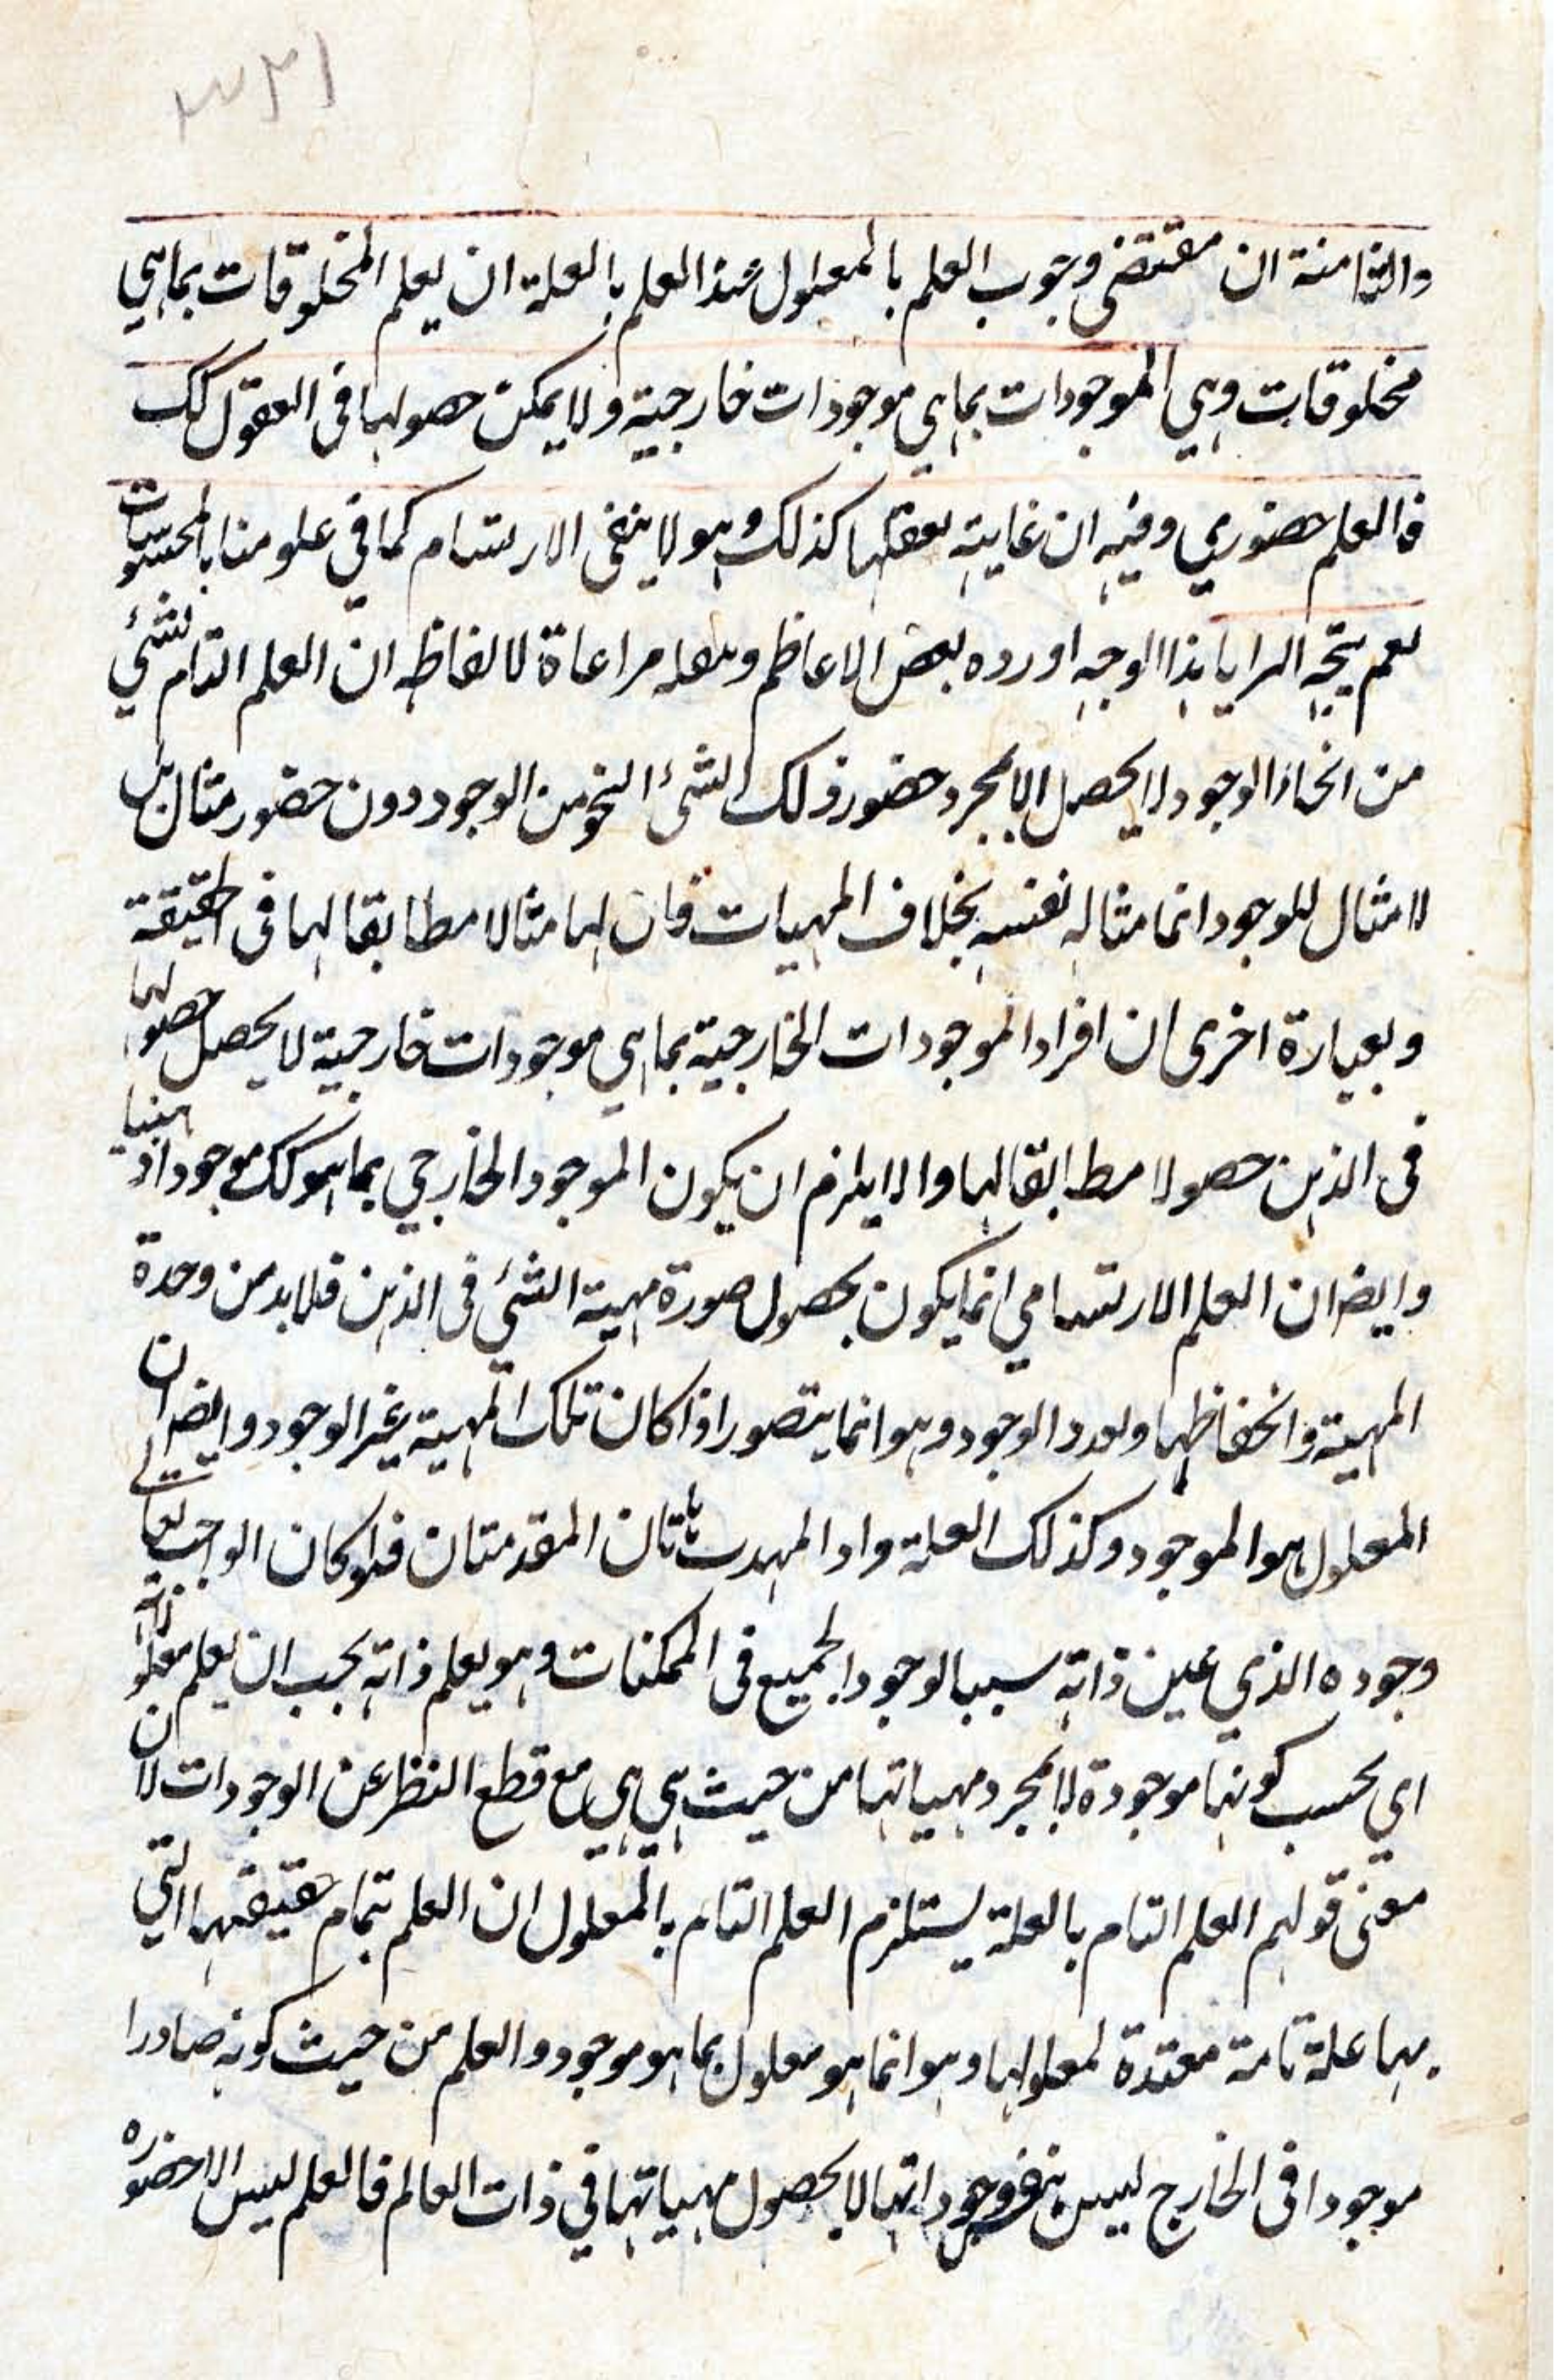 ٣٢١
والثامنة ان مقتضى وجوب العلم بالمعلول عند العلم بالعلة ان يعلم المخلوقات بما هي
مخلوقات وهي الموجودات بما هي موجودات خارجية ولا يمكن حصولها في العقول كك
فالعلم حضوري وفيه ان غايته تعقلها كذلك وهو لا ينفى الارتسام كما في علومنا بالمحسوسات
نعم يتجه الرايا بذا الوجه اورده بعض الاعاظم ونقله مراعاة لالفاظه ان العلم التام بشئ
من انحاء الوجود لا يحصل الا بمجرد حضور ذلك الشئ النحو من الوجود دون حضور مثال بل
لا مثال للوجود انما مثاله نفسه بخلاف المهيات فان لها مثالا مطابقا لها في الحقيقة
وبعبارة اخرى ان افراد الموجودات الخارجية بما هي موجودات خارجية لا يحصل حصولها
في الذهن حصولا مطابقا لها والا يلزم ان يكون الموجود الخارجي بما هو كك موجودا ذهنيا
وايضا ان العلم الارتسامي انما يكون بحصول صورة مهية الشئ في الذهن فلا بد من وحدة
المهية وانحفاظها وتعدد الوجود وهو انما يتصور اذا كان تلك المهية غير الوجود وايضا ان
المعلول هو الموجود وكذلك العلة واذا تمهدت هاتان المقدمتان فلو كان الواجب تعالى
وجوده الذي عين ذاته سببا لوجود الجميع في الممكنات وهو يعلم ذاته يجب ان يعلم معلولاته
اي بحسب كونها موجودة لا بمجرد مهياتها من حيث هي هي مع قطع النظر عن الوجودات لان
معنى قولهم العلم التام بالعلة يستلزم العلم التام بالمعلول ان العلم بتمام حقيقتها التي
بها علة تامة معتدة لمعلولها وهو انما هو معلول بما هو موجود والعلم من حيث كونه صادرا
موجودا في الخارج ليس بنفس وجوداتها لا بحصول مهياتها في ذات العالم فالعلم ليس الا حضوره